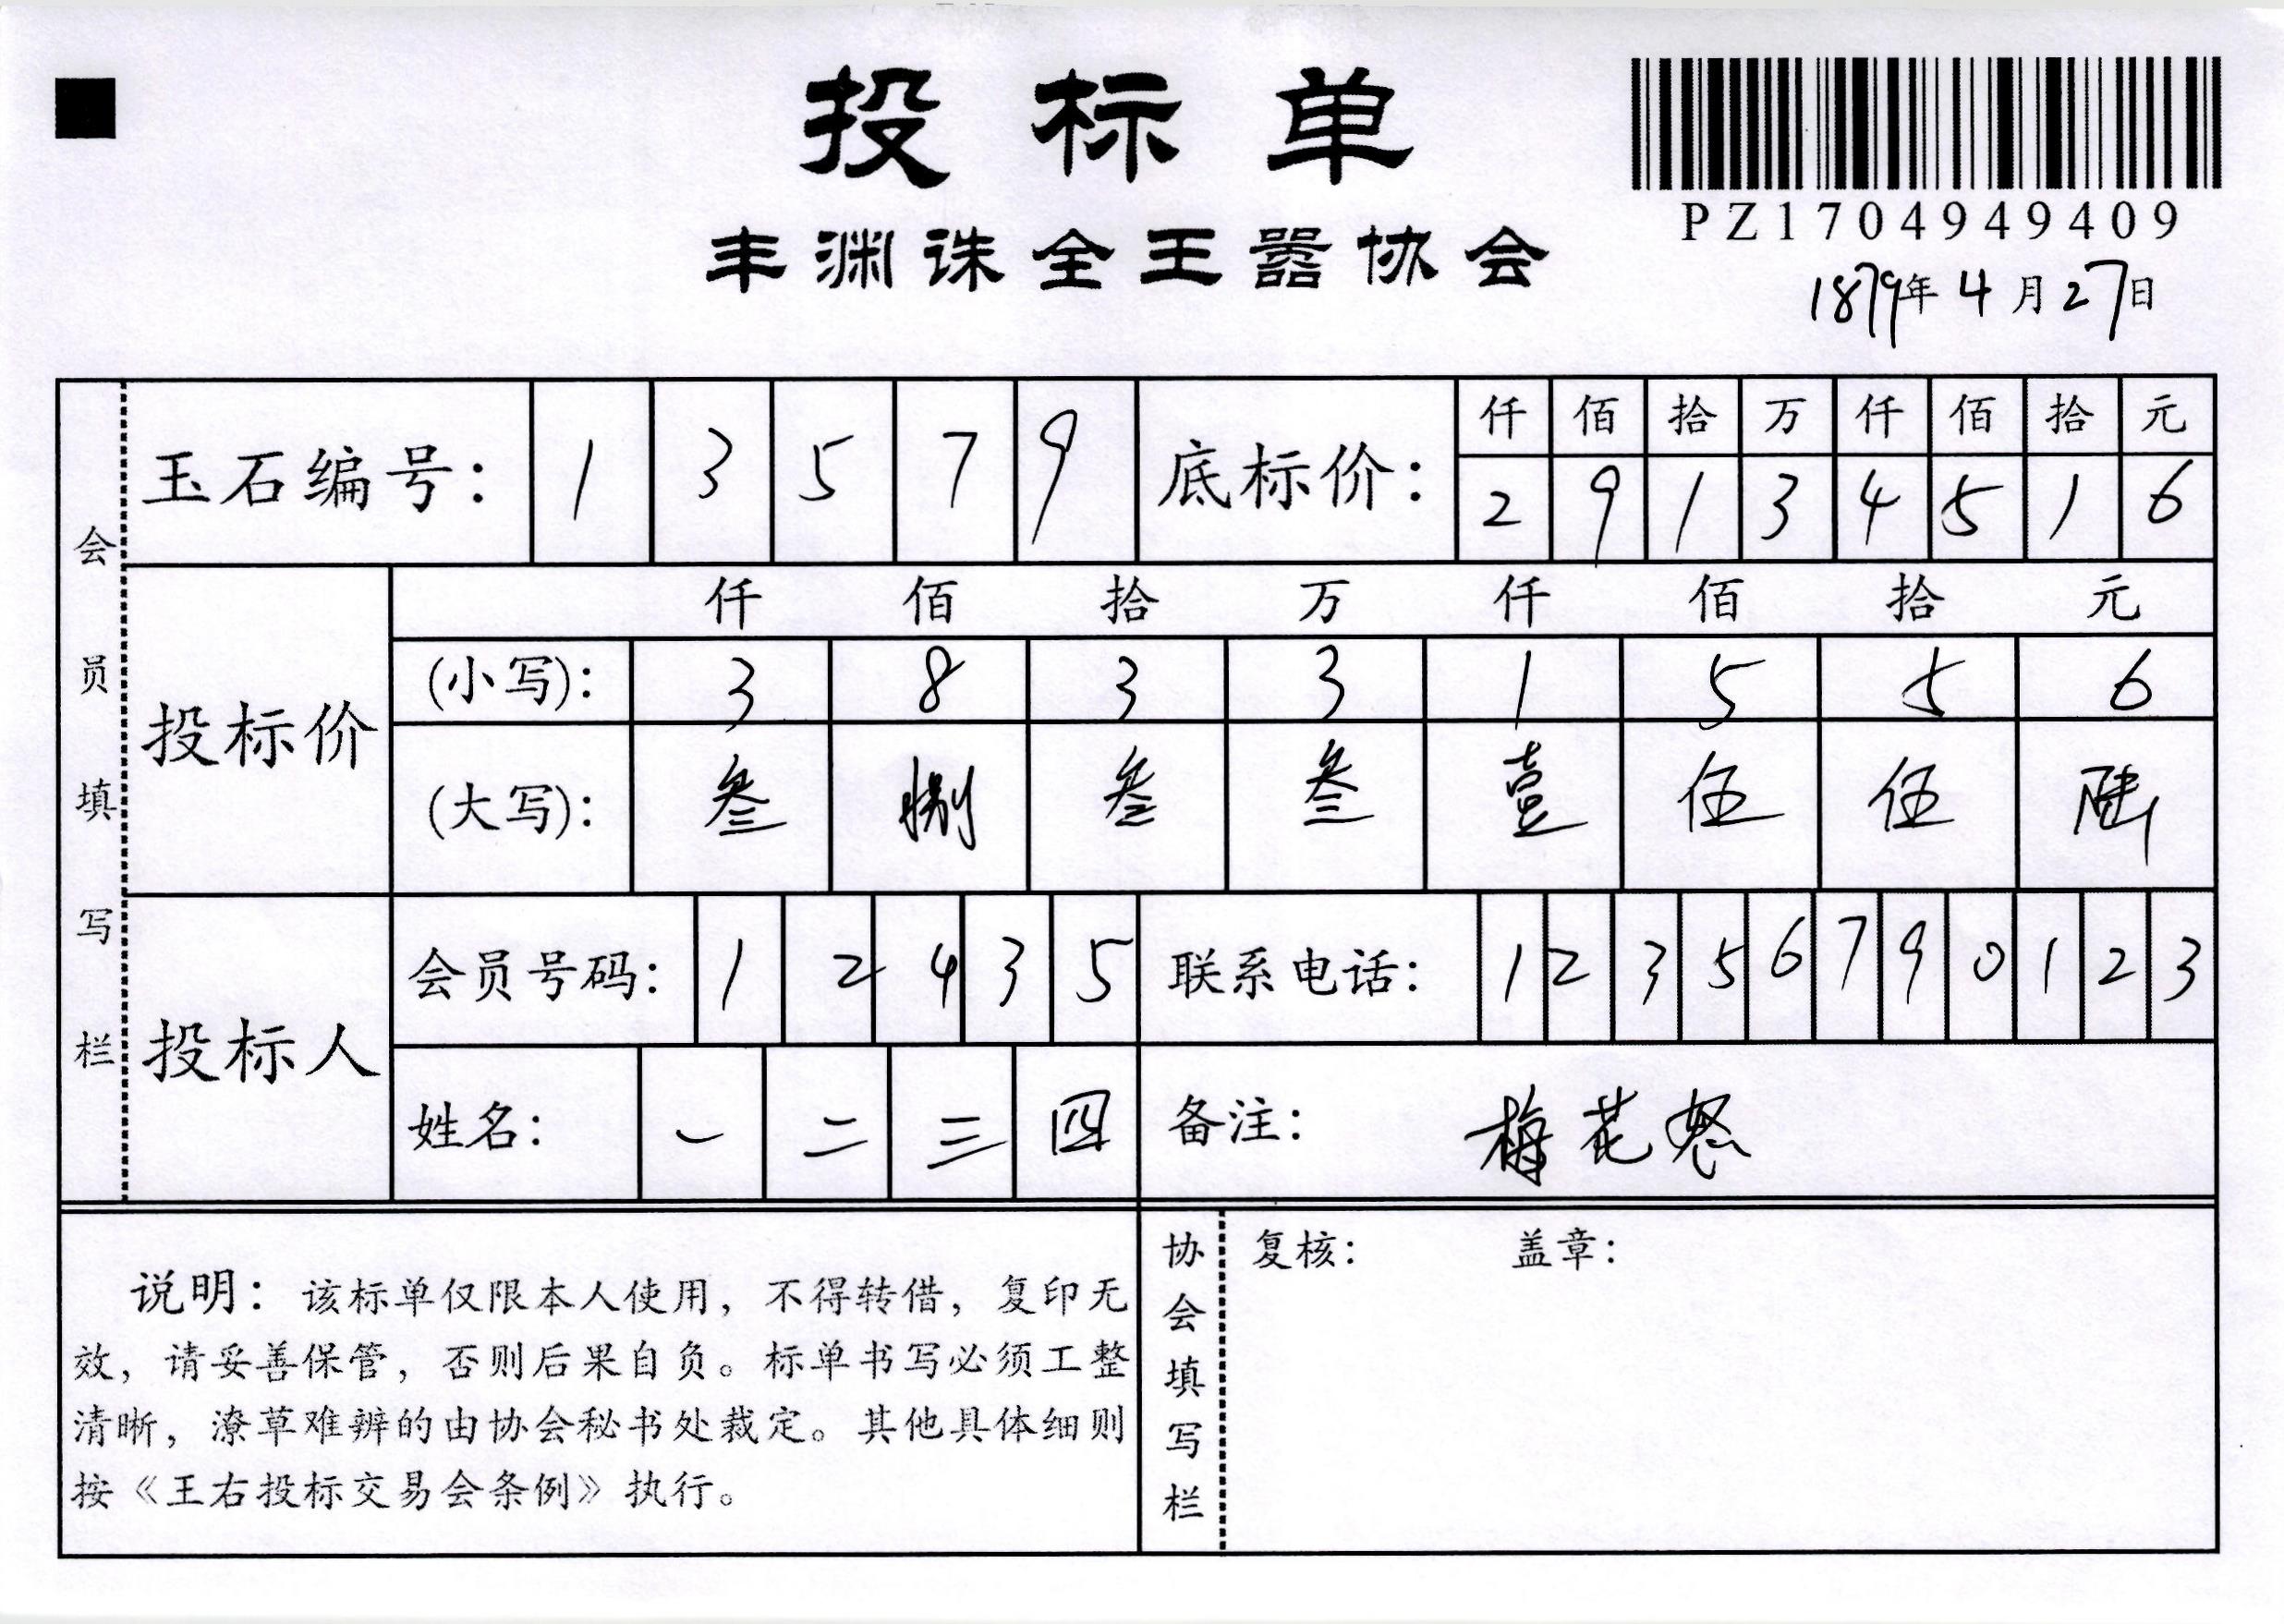 投标单
丰渊诛全王嚣协会
PZ1704949409
1879年4月27日
会员填写栏
玉石编号： 1 3 5 7 9
底标价： 仟 佰 拾 万 仟 佰 拾 元
2 9 1 3 4 5 1 6
投标价
仟 佰 拾 万 仟 佰 拾 元
(小写)： 3 8 3 3 1 5 5 6
(大写)： 叁 捌 叁 叁 壹 伍 伍 陆
投标人
会员号码： 1 2 4 3 5
联系电话： 1 2 3 5 6 7 9 0 1 2 3
姓名： 一 二 三 四
备注： 梅花怒
说明：该标单仅限本人使用，不得转借，复印无
效，请妥善保管，否则后果自负。标单书写必须工整
清晰，潦草难辨的由协会秘书处裁定。其他具体细则
按《王右投标交易会条例》执行。
协会填写栏
复核： 盖章：